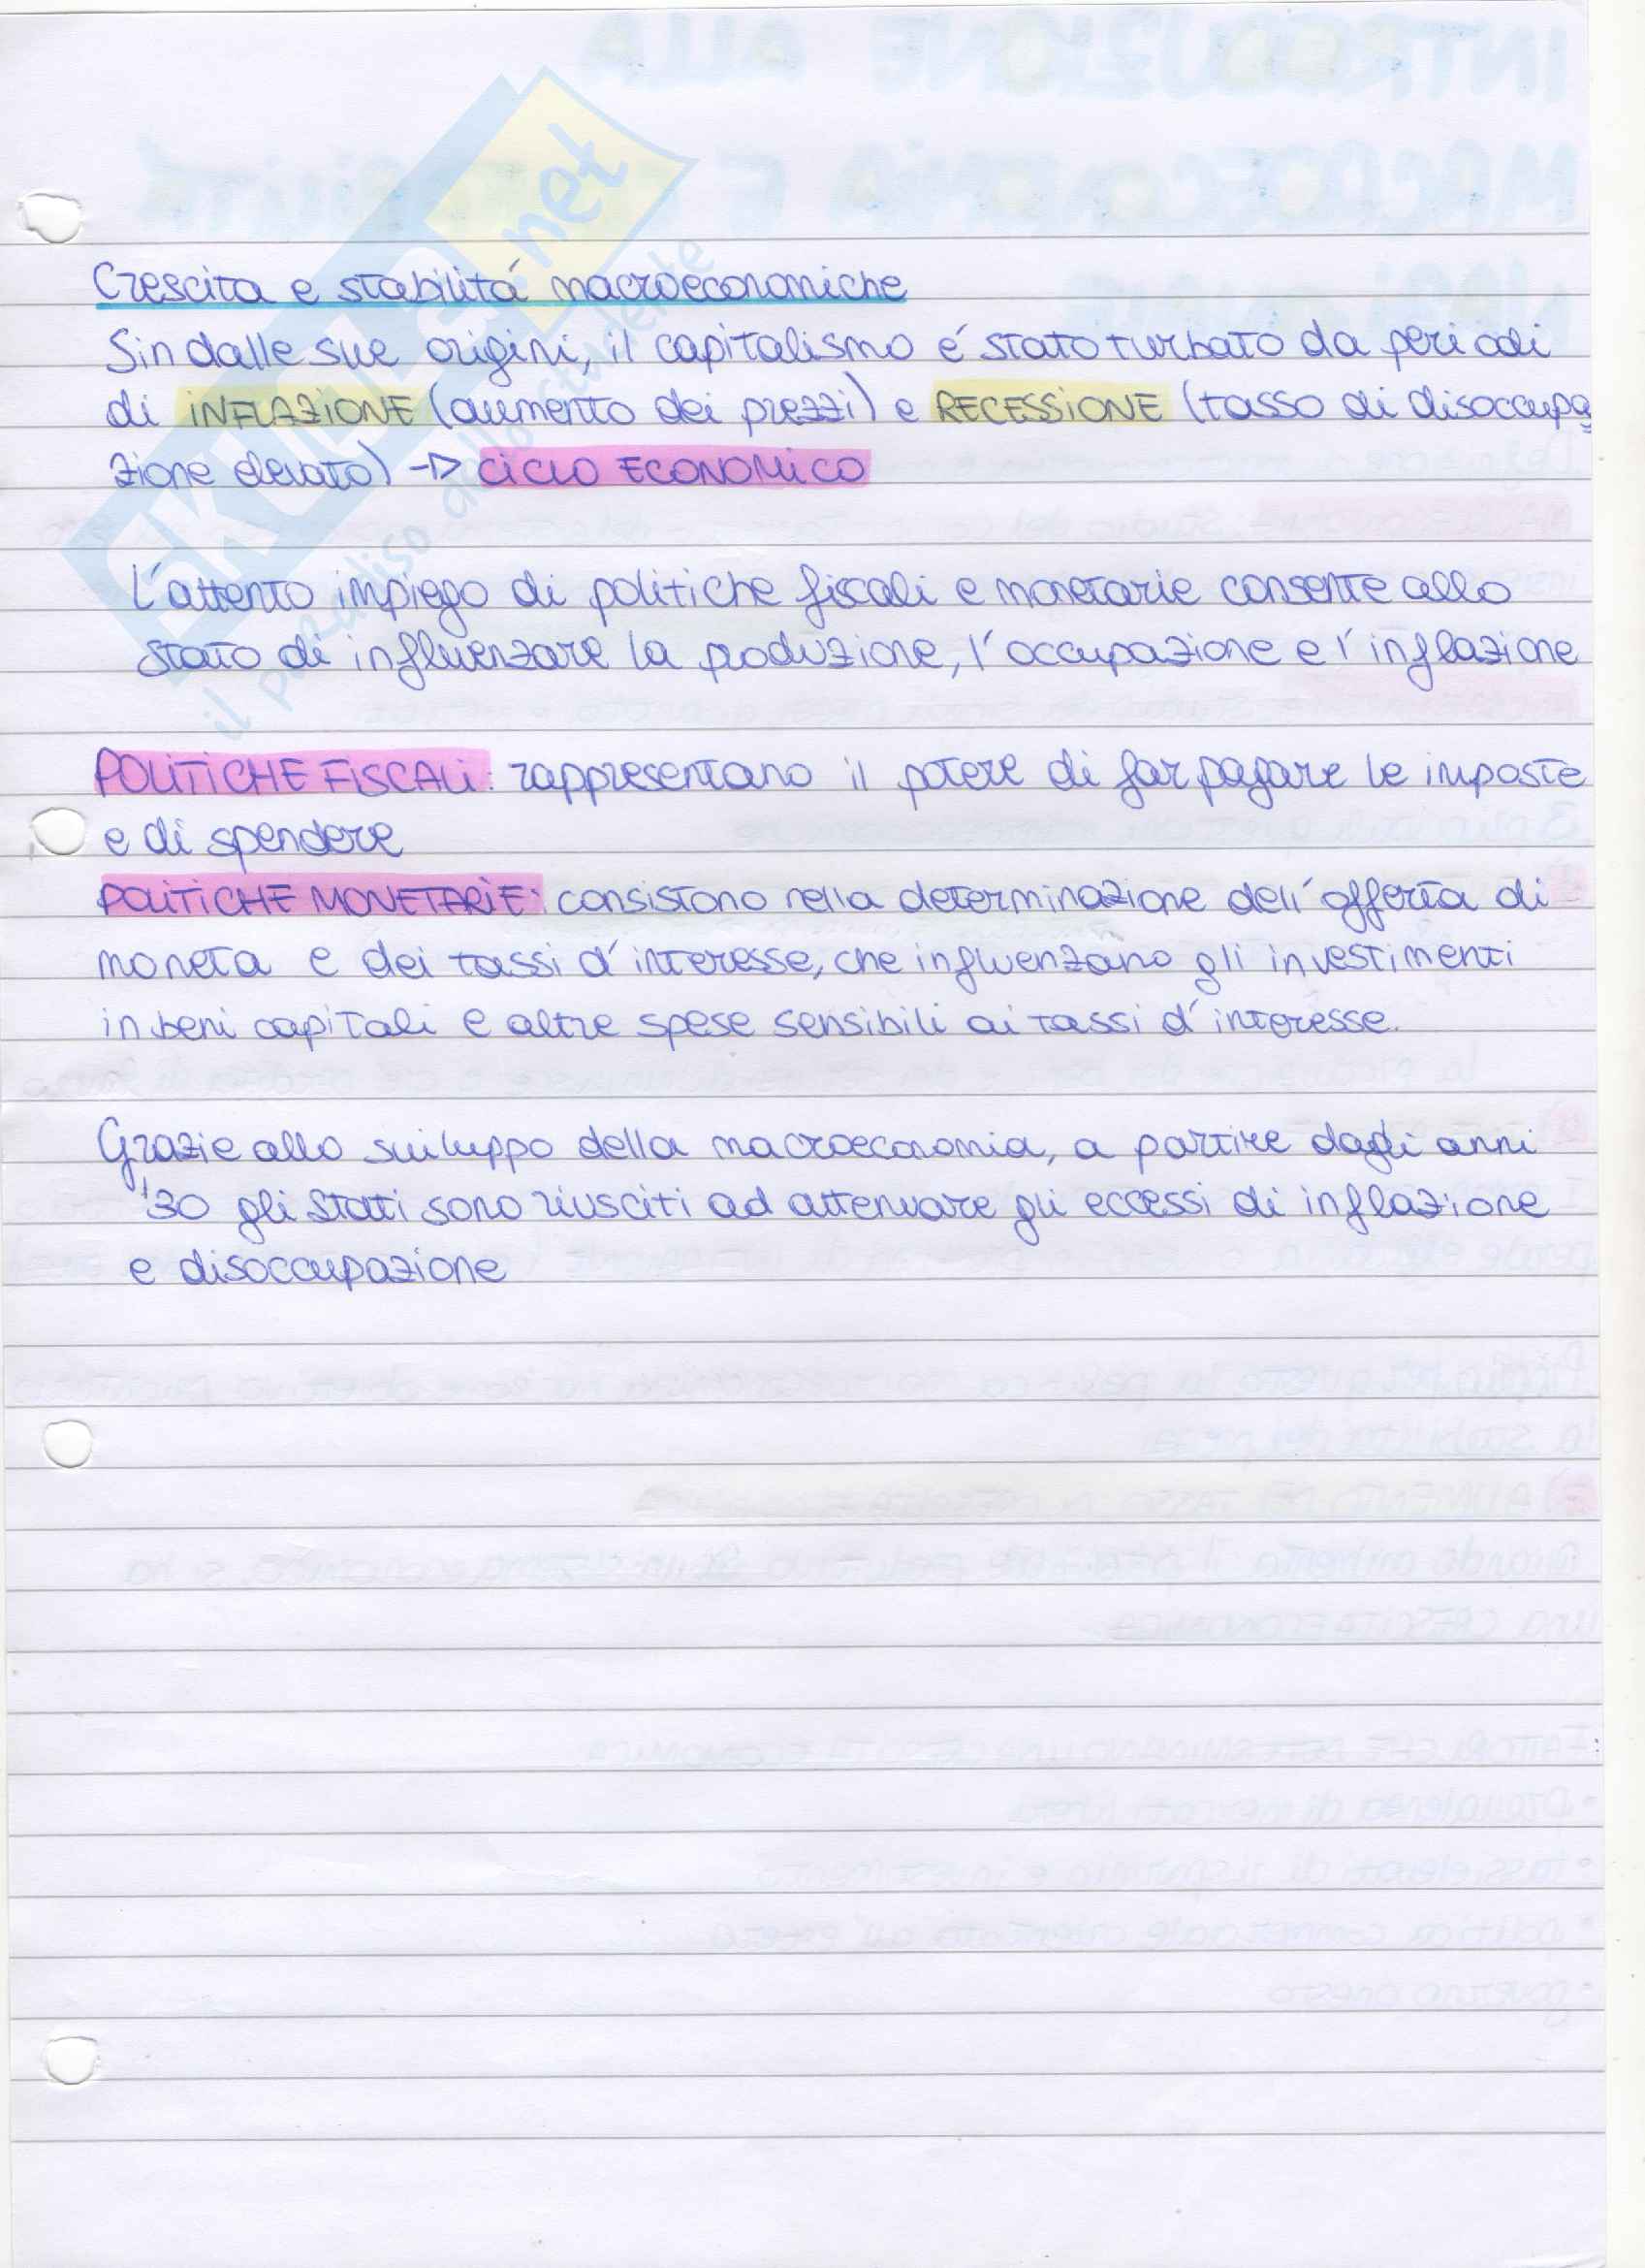 Crescita e stabilitá macroeconomiche
Sin dalle sue origini, il capitalismo é stato turbato da periodi
di INFLAZIONE (aumento dei prezzi) e RECESSIONE (tasso di disoccupa
zione elevato) -▷ CICLO ECONOMICO
L'attento impiego di politiche fiscali e monetarie consente allo
stato di influenzare la produzione, l'occupazione e l'inflazione
POLITICHE FISCALI: rappresentano il potere di far pagare le imposte
e di spendere
POLITICHE MONETARIE: consistono nella determinazione dell'offerta di
moneta e dei tassi d'interesse, che influenzano gli investimenti
in beni capitali e altre spese sensibili ai tassi d'interesse.
Grazie allo sviluppo della macroeconomia, a partire dagli anni
'30 gli Stati sono riusciti ad attenuare gli eccessi di inflazione
e disoccupazione
SKUOLA.net
il paradiso dello studente